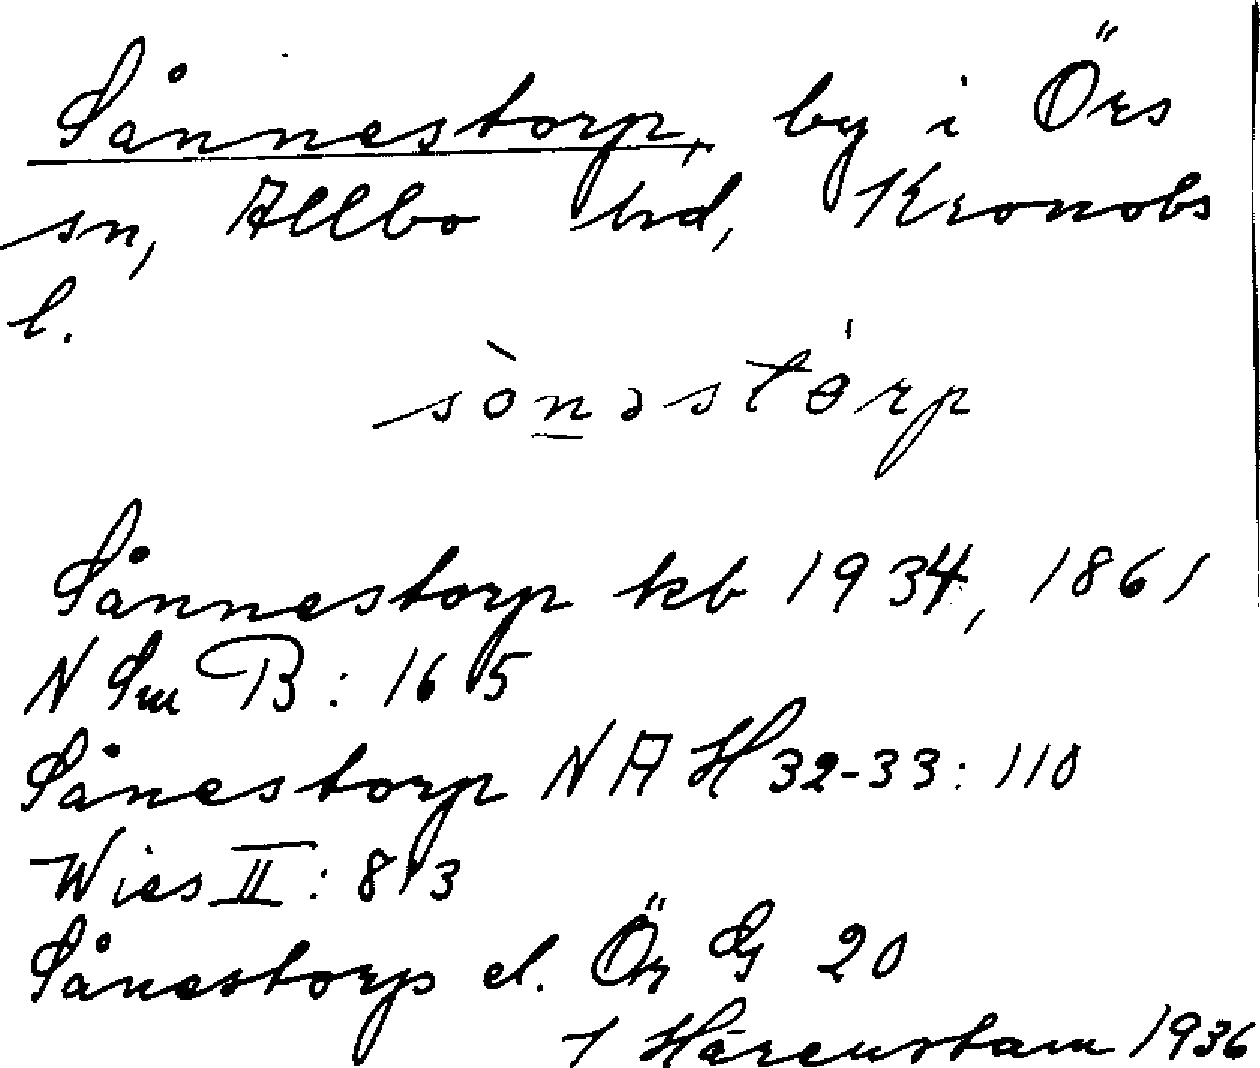 Sånnestorp, by i Örs
sn, Allbo hd, Kronobs
l.
sònəstɵ́rp
Sånnestorp kb 1934, 1861
N Sm B: 165
Sånestorp N A H 32-33: 110
Wies II: 83
Sånestorp el. Ör G 20
I Härenstam 1936